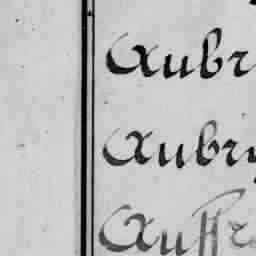 Aubr
Aubry
Auffr